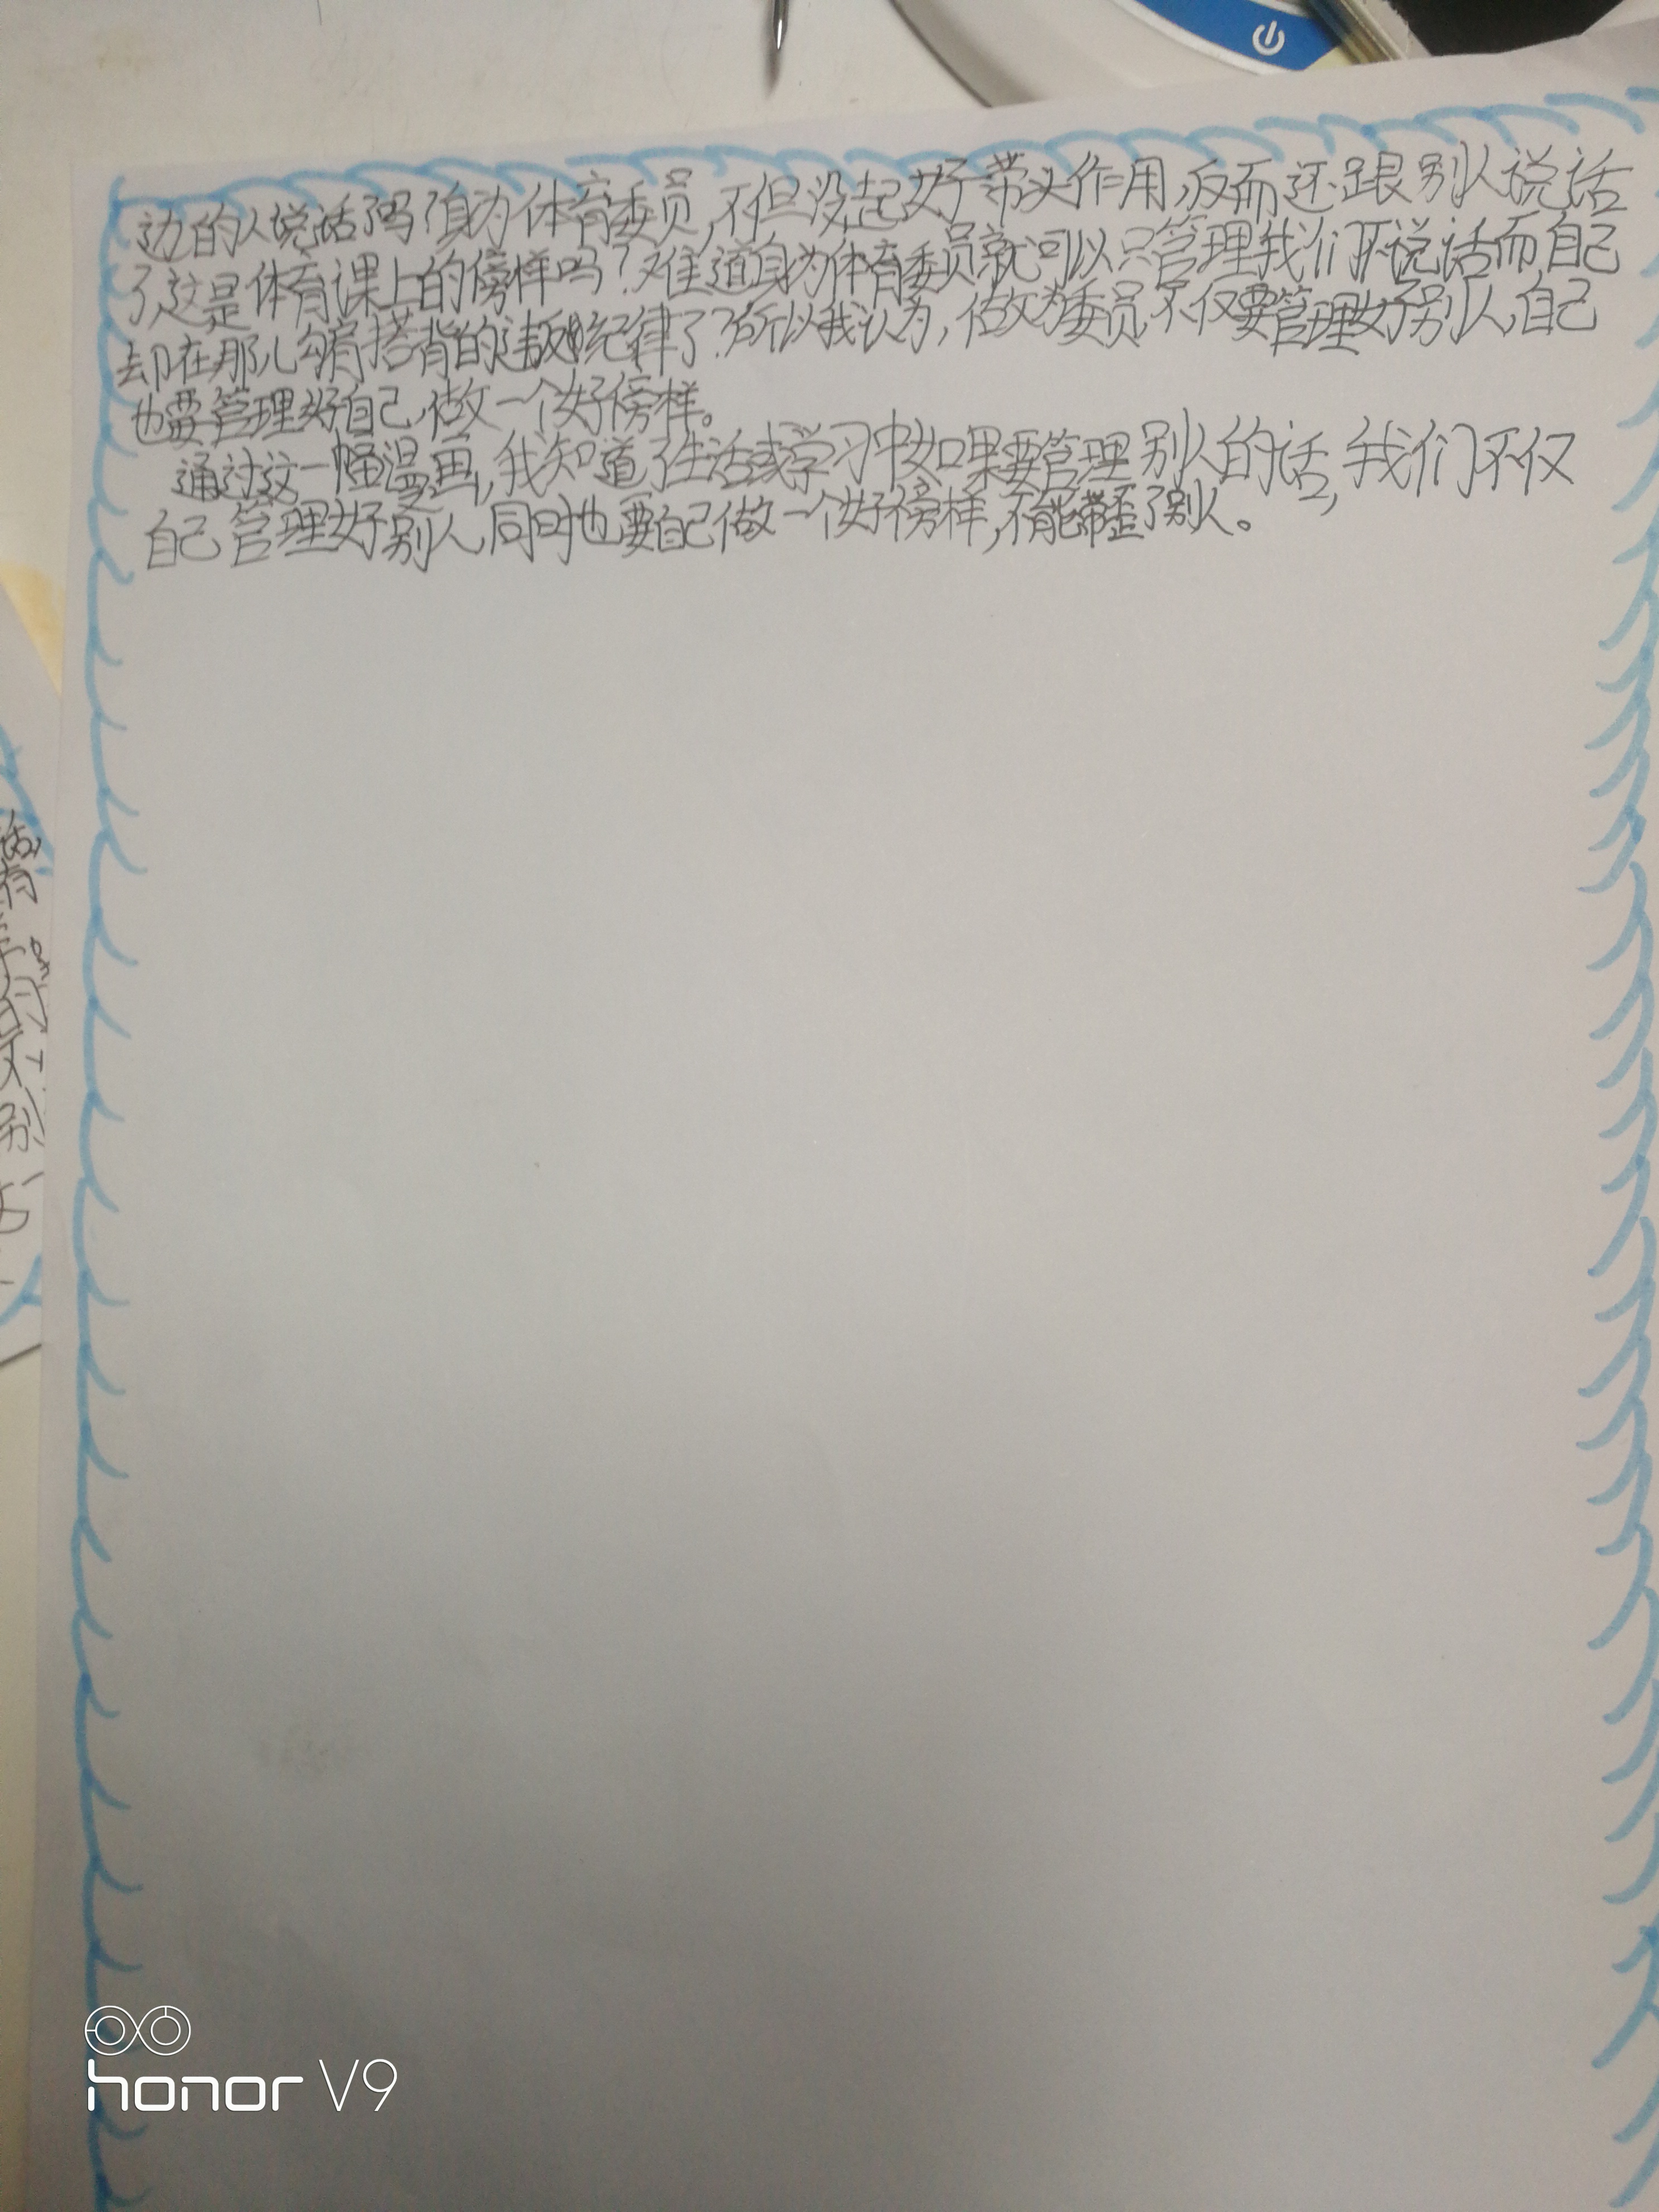 边的人说话了吗?身为体育委员,不但没起好带头作用,反而还跟别人说话
了,这是体育课上的傍样吗?难道身为体育委员就可以只管理我们不说话而自己
却在那儿勾肩搭背的违反纪律了?所以我认为,做为委员不仅要管理好别人,自己
也要管理好自己,做一个好傍样。
通过这一幅漫画,我知道了生活或学习中如果要管理别人的话,我们不仅
自己管理好别人,同时也要自己做一个好傍样,不能带歪了别人。
话,
有
别
honor V9